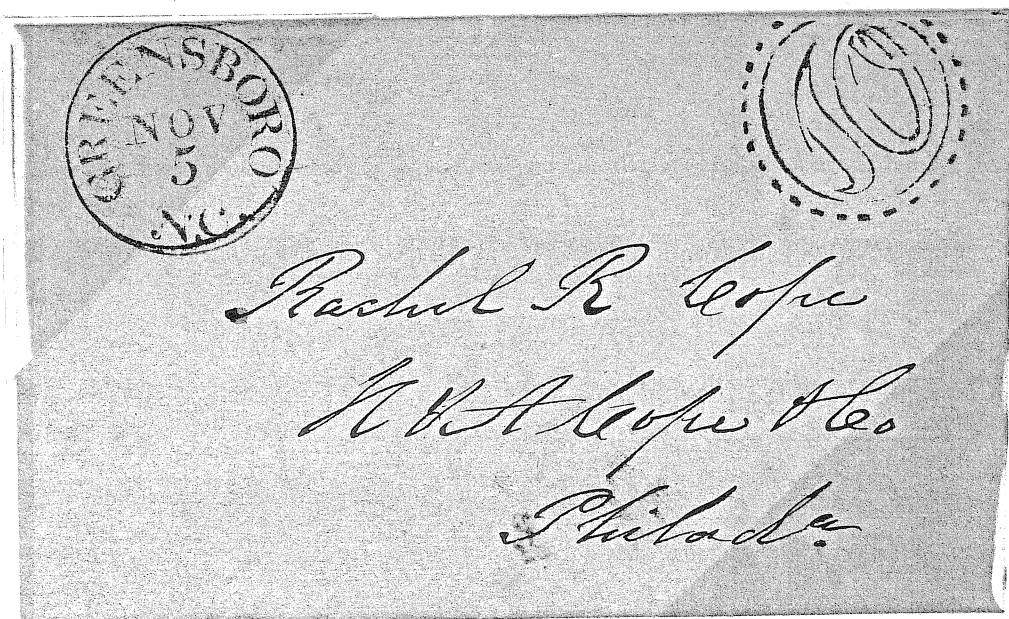 GREENSBORO
NOV
5
N.C.
10
Rachel R Cope
H & A Cope & Co
Philada.